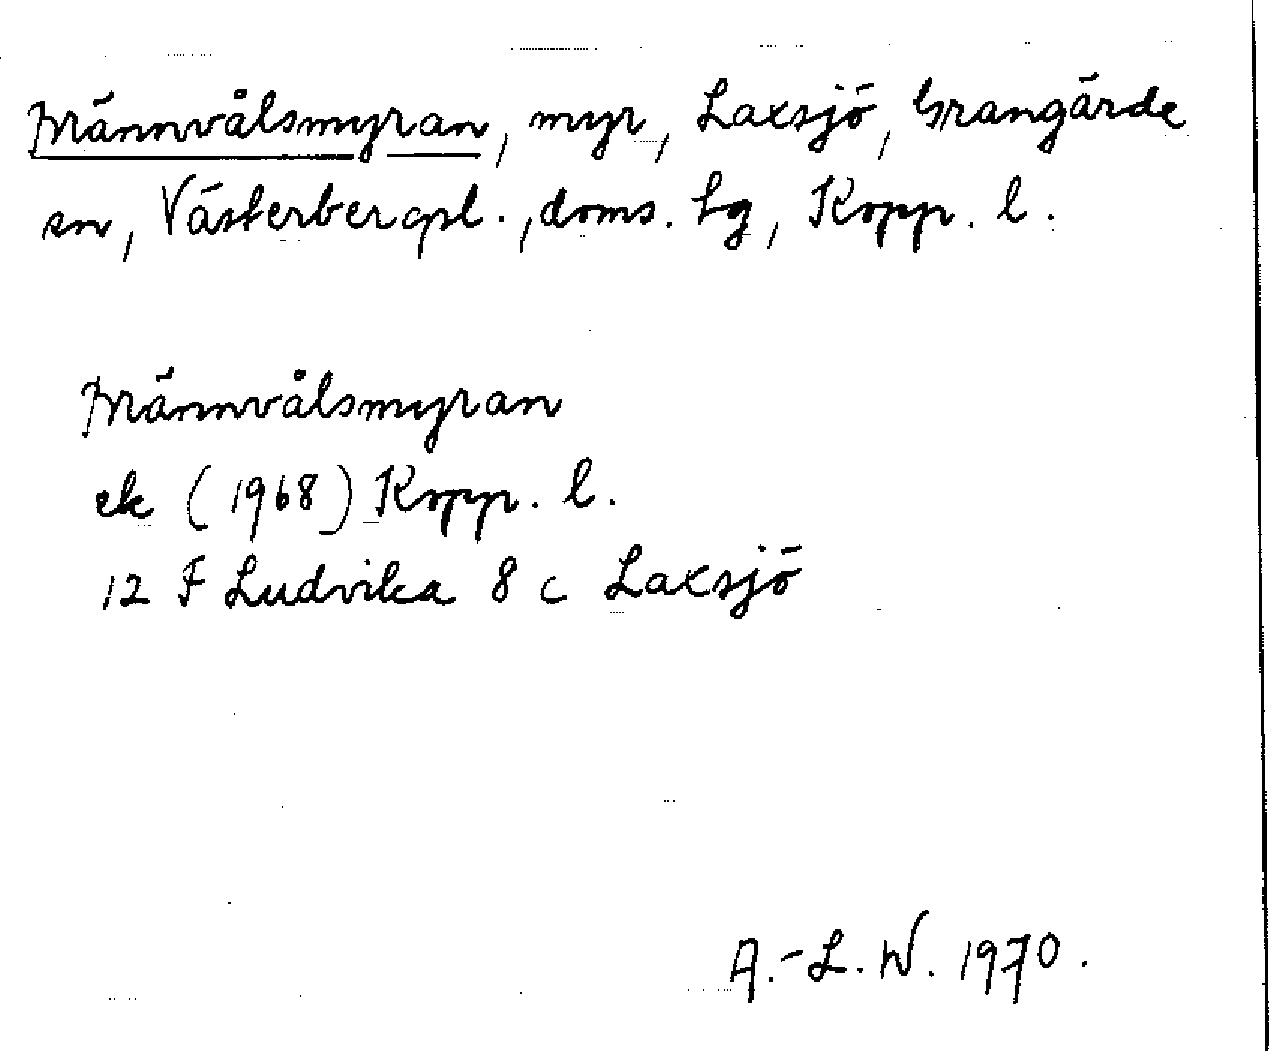 Brännvålsmyran, myr, Laxsjö, Grangärde
sn, Västerbergsl., doms. hg, Kopp. l.
Brännvålsmyran
ek (1968) Kopp. l.
12 F Ludvika 8 c Laxsjö
A.-L. W. 1970.